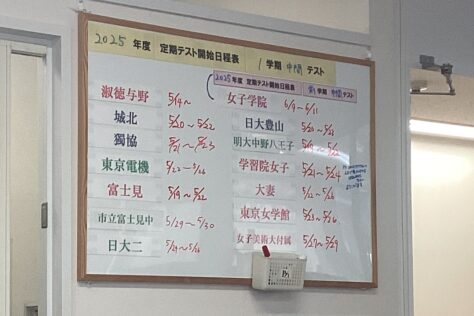 2025 年度 定期テスト開始日程表 1 学期 中間 テスト
2025 年度 定期テスト開始日程表 中間 テスト
淑徳与野 5/14〜
女子学院 6/9〜6/11
城北 5/20〜5/22
日大豊山 5/20〜5/23
獨協 5/21〜5/23
明大中野八王子
東京電機 5/22〜5/26
学習院女子 5/21〜5/24
富士見 5/19〜5/22
大妻 5/22〜5/26
市立富士見中 5/29〜5/30
東京女学館 5/23〜5/26
日大二
女子美術大付属 5/27〜5/29